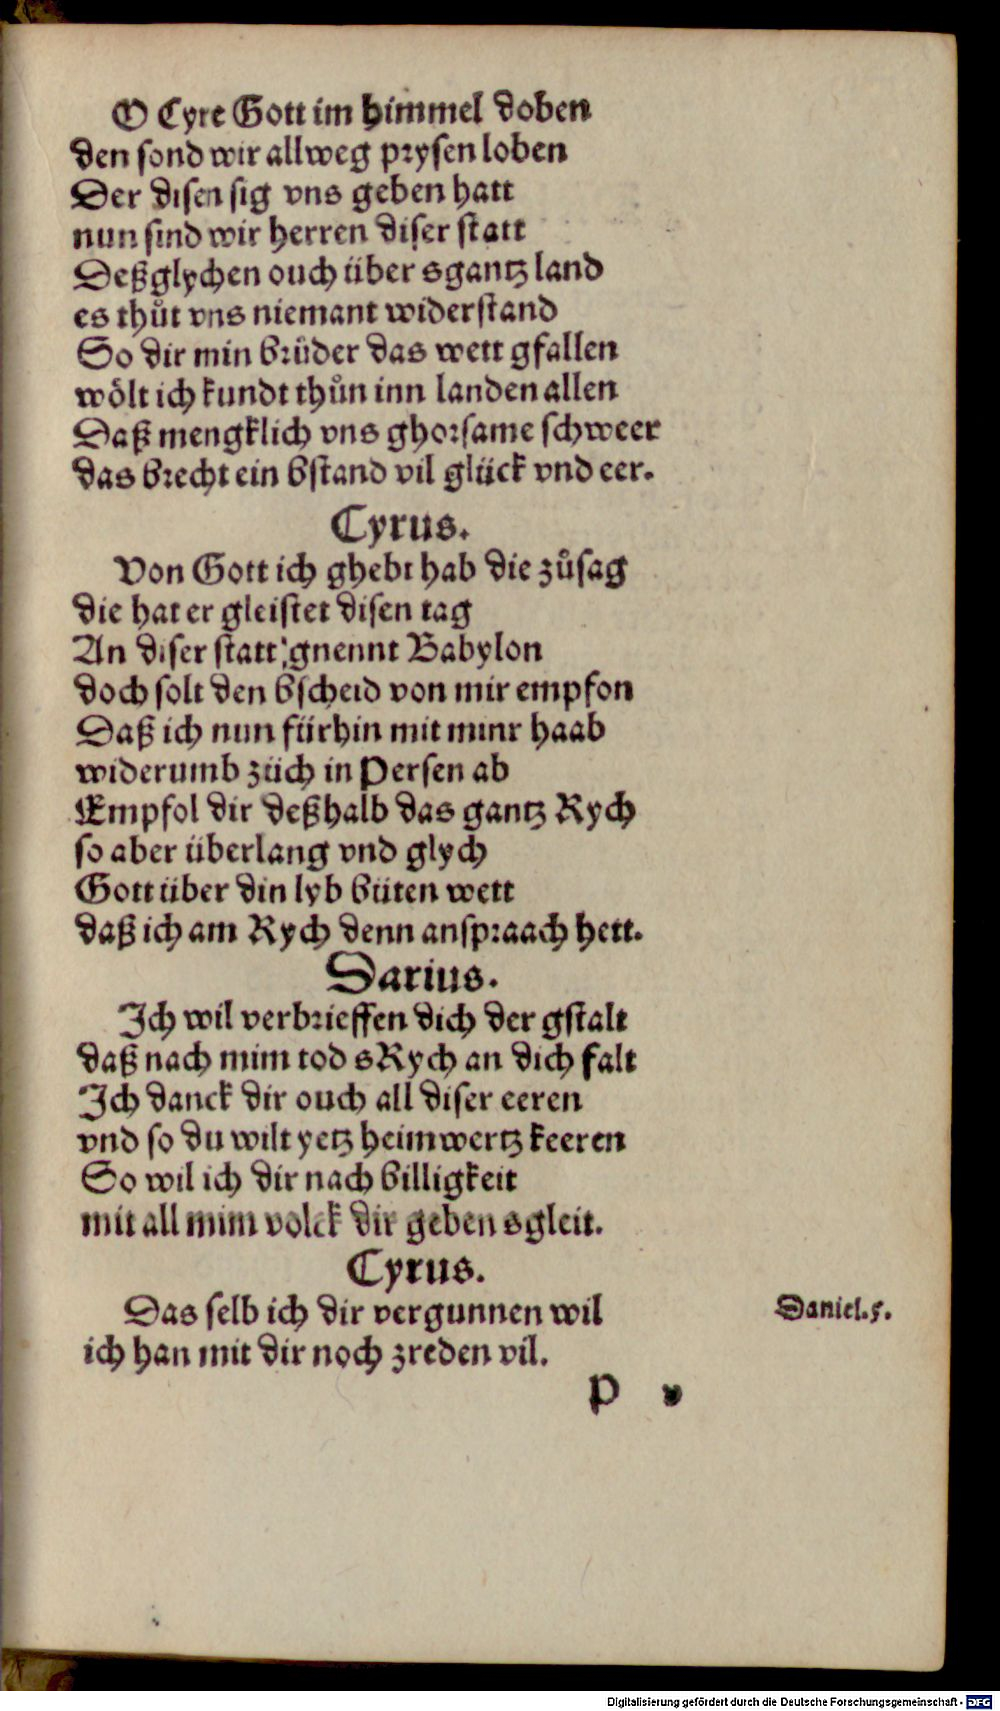 O Cyre Gott im himmel doben
den sond wir allweg prysen loben
Der disen sig vns geben hatt
nun sind wir herren diser statt
Deßglychen ouch über sgantz land
es thůt vns niemant widerstand
So dir min brüder das wett gfallen
wölt ich kundt thůn inn landen allen
Daß mengklich vns ghorsame schweer
das brecht ein bstand vil glück vnd eer.
Cyrus.
Von Gott ich ghebt hab die zůsag
die hat er gleistet disen tag
An diser statt gnennt Babylon
doch solt den bscheid von mir empfon
Daß ich nun fürhin mit minr haab
widerumb züch in Persen ab
Empfol dir deßhalb das gantz Rych
so aber überlang vnd glych
Gott über din lyb büten wett
daß ich am Rych denn anspraach hett.
Darius.
Ich wil verbrieffen dich der gstalt
daß nach mim tod sRych an dich falt
Ich danck dir ouch all diser eeren
vnd so du wilt yetz heimwertz keeren
So wil ich dir nach billigkeit
mit all mim volck dir geben sgleit.
Cyrus.
Das selb ich dir vergunnen wil Daniel.5.
ich han mit dir noch zreden vil.
P v
Digitalisierung gefördert durch die Deutsche Forschungsgemeinschaft - DFG